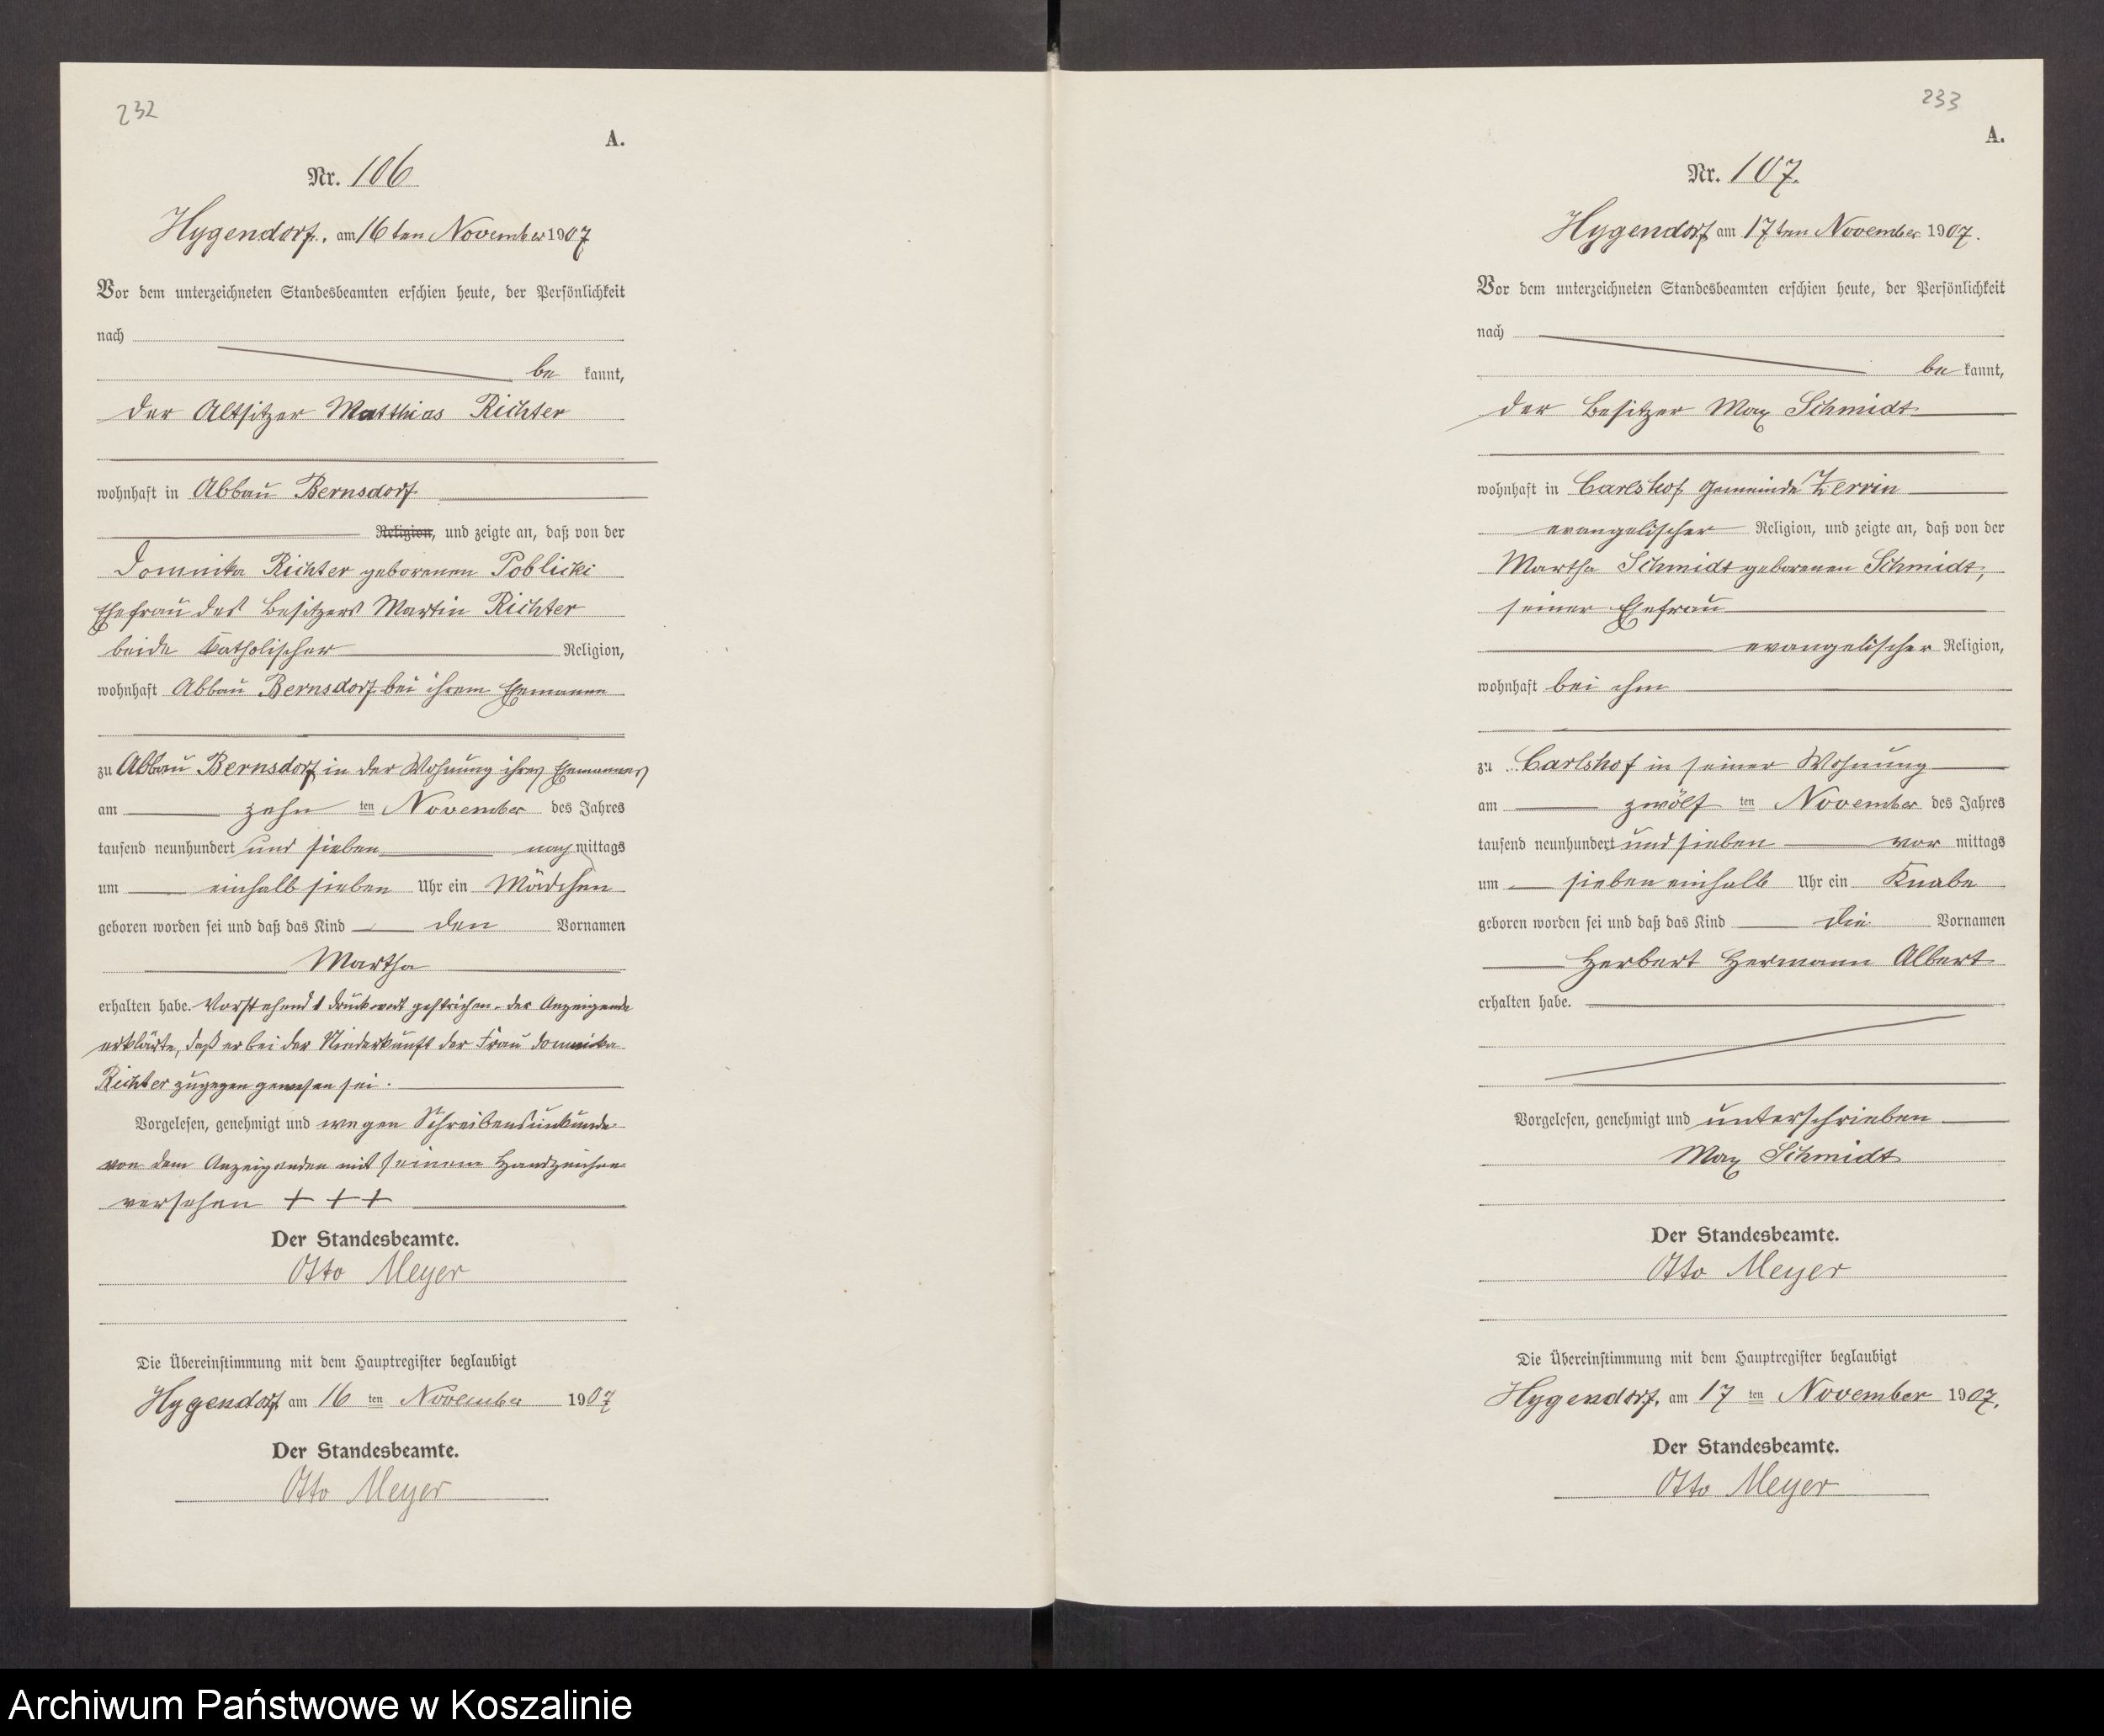 232
A.
Nr. 106
Hygendorf, am 16ten November 1907
Vor dem unterzeichneten Standesbeamten erschien heute, der Persönlichkeit
nach
be kannt,
der Altsitzer Matthias Richter
wohnhaft in Abbau Bernsdorf
Religion, und zeigte an, daß von der
Domnika Richter geborenen Poblicki
Ehefrau des Besitzers Martin Richter
beide katholischer Religion,
wohnhaft Abbau Bernsdorf bei ihrem Ehemanne
zu Abbau Bernsdorf in der Wohnung ihres Ehemannes
am zehn ten November des Jahres
tausend neunhundert und sieben nach mittags
um einhalb sieben Uhr ein Mädchen
geboren worden sei und daß das Kind den Vornamen
Martha
erhalten habe. Vorstehend 1 Druckwort gestrichen. Der Anzeigende
erklärte, daß er bei der Niederkunft der Frau Domnika
Richter zugegen gewesen sei.
Vorgelesen, genehmigt und wegen Schreibensunkunde
von dem Anzeigenden mit seinem Handzeichen
versehen + + +
Der Standesbeamte.
Otto Meyer
Die Übereinstimmung mit dem Hauptregister beglaubigt
Hygendorf, am 16 ten November 1907
Der Standesbeamte.
Otto Meyer
233
A.
Nr. 107.
Hygendorf am 17ten November 1907.
Vor dem unterzeichneten Standesbeamten erschien heute, der Persönlichkeit
nach
be kannt,
der Besitzer Max Schmidt
wohnhaft in Carlshof Gemeinde Zerrin
evangelischer Religion, und zeigte an, daß von der
Martha Schmidt geborenen Schmidt,
seiner Ehefrau
evangelischer Religion,
wohnhaft bei ihm
zu Carlshof in seiner Wohnung
am zwölf ten November des Jahres
tausend neunhundert und sieben vor mittags
um sieben einhalb Uhr ein Knabe
geboren worden sei und daß das Kind die Vornamen
Herbert Hermann Albert
erhalten habe.
Vorgelesen, genehmigt und unterschrieben
Max Schmidt
Der Standesbeamte.
Otto Meyer
Die Übereinstimmung mit dem Hauptregister beglaubigt
Hygendorf, am 17 ten November 1907.
Der Standesbeamte.
Otto Meyer
Archiwum Państwowe w Koszalinie